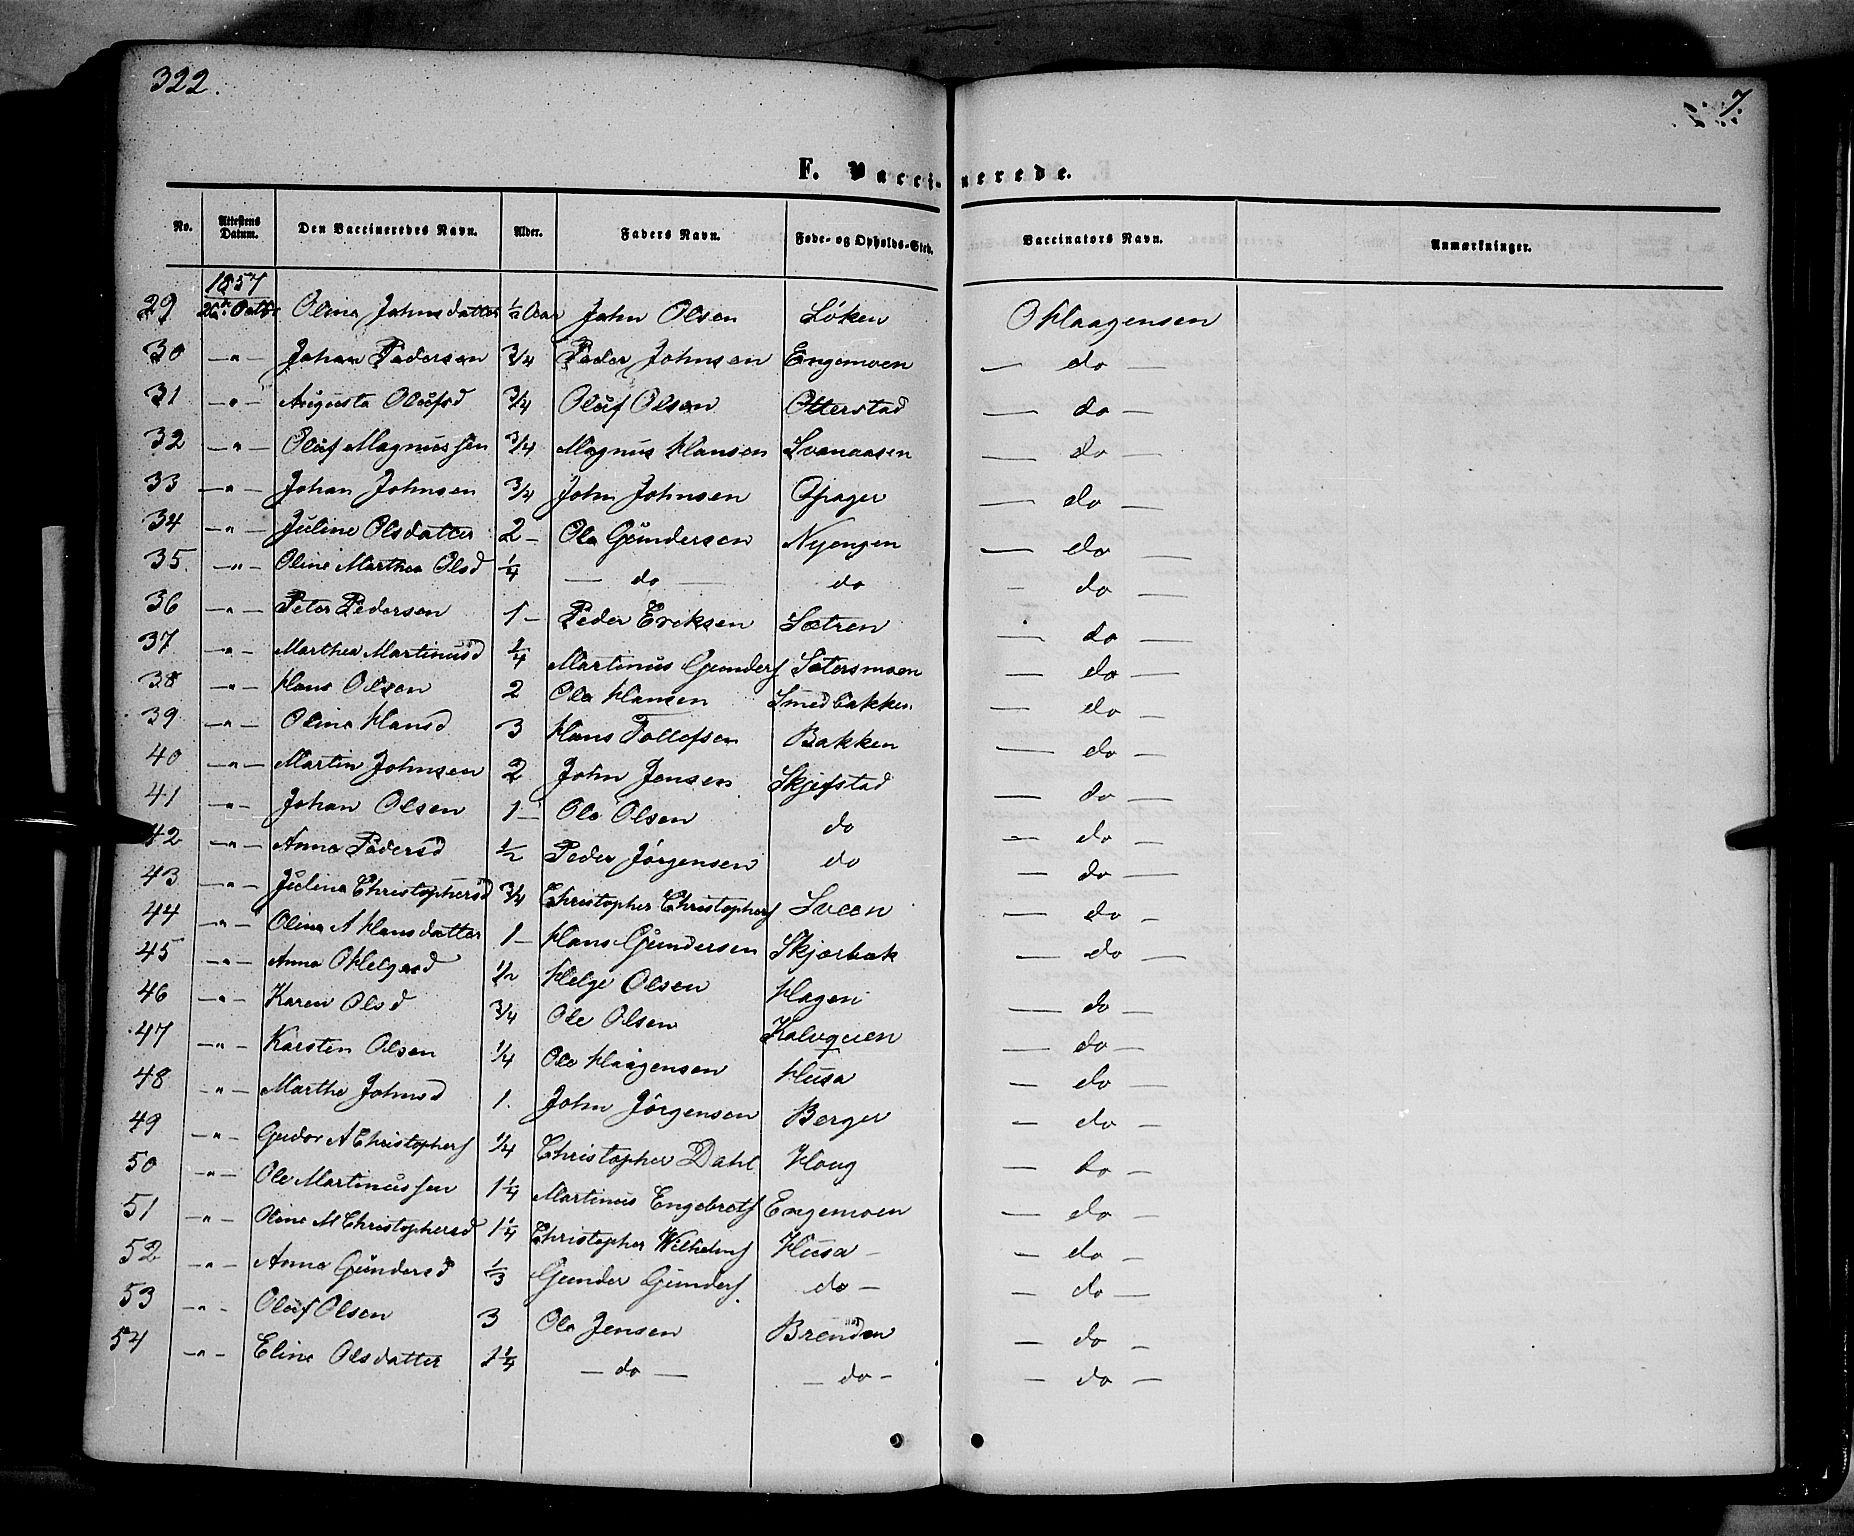 322.
7
F. Vaccinerede.
No. Attestens Datum. Den Vaccineredes Navn. Alder. Faders Navn. Føde- og Opholds-Sted. Vaccinators Navn. Anmærkninger.
1857
29 Olina Johnsdatter 1/2 Aar John Olsen Løken O Haagensen
30 —"— Johan Pedersen 3/4 Peder Johnsen Engemoen — do —
31 —"— Augusta Olufsd 3/4 Oluf Olsen Otterstad — do —
32 —"— Oluf Magnussen 3/4 Magnus Hansen Svenaasen — do —
33 —"— Johan Johnsen 3/4 John Johnsen Opager — do —
34 —"— Juline Olsdatter 2 — Ole Gundersen Nyengen — do —
35. —"— Oline Marthea Olsd 1/4 — do — do — do —
36 —"— Peter Pedersen 1 — Peder Ericksen Sætren — do —
37 —"— Marthea Martinusd 1/4 Martinus Gunders Sætersmoen — do —
38 —"— Hans Olsen 2 Ole Hansen Smedbakken — do —
39 —"— Olina Hansd 3 Hans Tollefsen Bakken — do —
40 —"— Martin Johnsen 2 John Jensen Skjefstad — do —
41 —"— Johan Olsen 1 — Ole Olsen do — do —
42 —"— Anna Pedersd 1/2 Peder Jörgensen do — do —
43 —"— Julina Christophersd 3/4 Christopher Christophers Sveen — do —
44 —"— Olina A Hansdatter 1 — Hans Gundersen Skjærbæk — do —
45 —"— Anna O Helgesd 1/2 Helge Olsen Hagen — do —
46 —"— Karen Olsd 3/4 Ole Olsen — do —
47 —"— Karsten Olsen 1/4 Ole Haagensen Husa — do —
48 —"— Marthe Johnsd 1. John Jörgensen Berger — do —
49 —"— A Christophers 1/4 Christopher Dahl Houg — do —
50 —"— Ole Martinussen 1 1/4 Martinus Engebrets Engemoen — do —
51 —"— Oline M Christophersd 1 1/4 Christopher Wilhelms Husa — — do —
52 —"— Anna Gundersd 1/3 Gunder Gunders. do — — do —
53 —"— Oluf Olsen 3 Ole Jensen Brenden — do —
54 —"— Eline Olsdatter 1 1/4 — do — — do — — do —